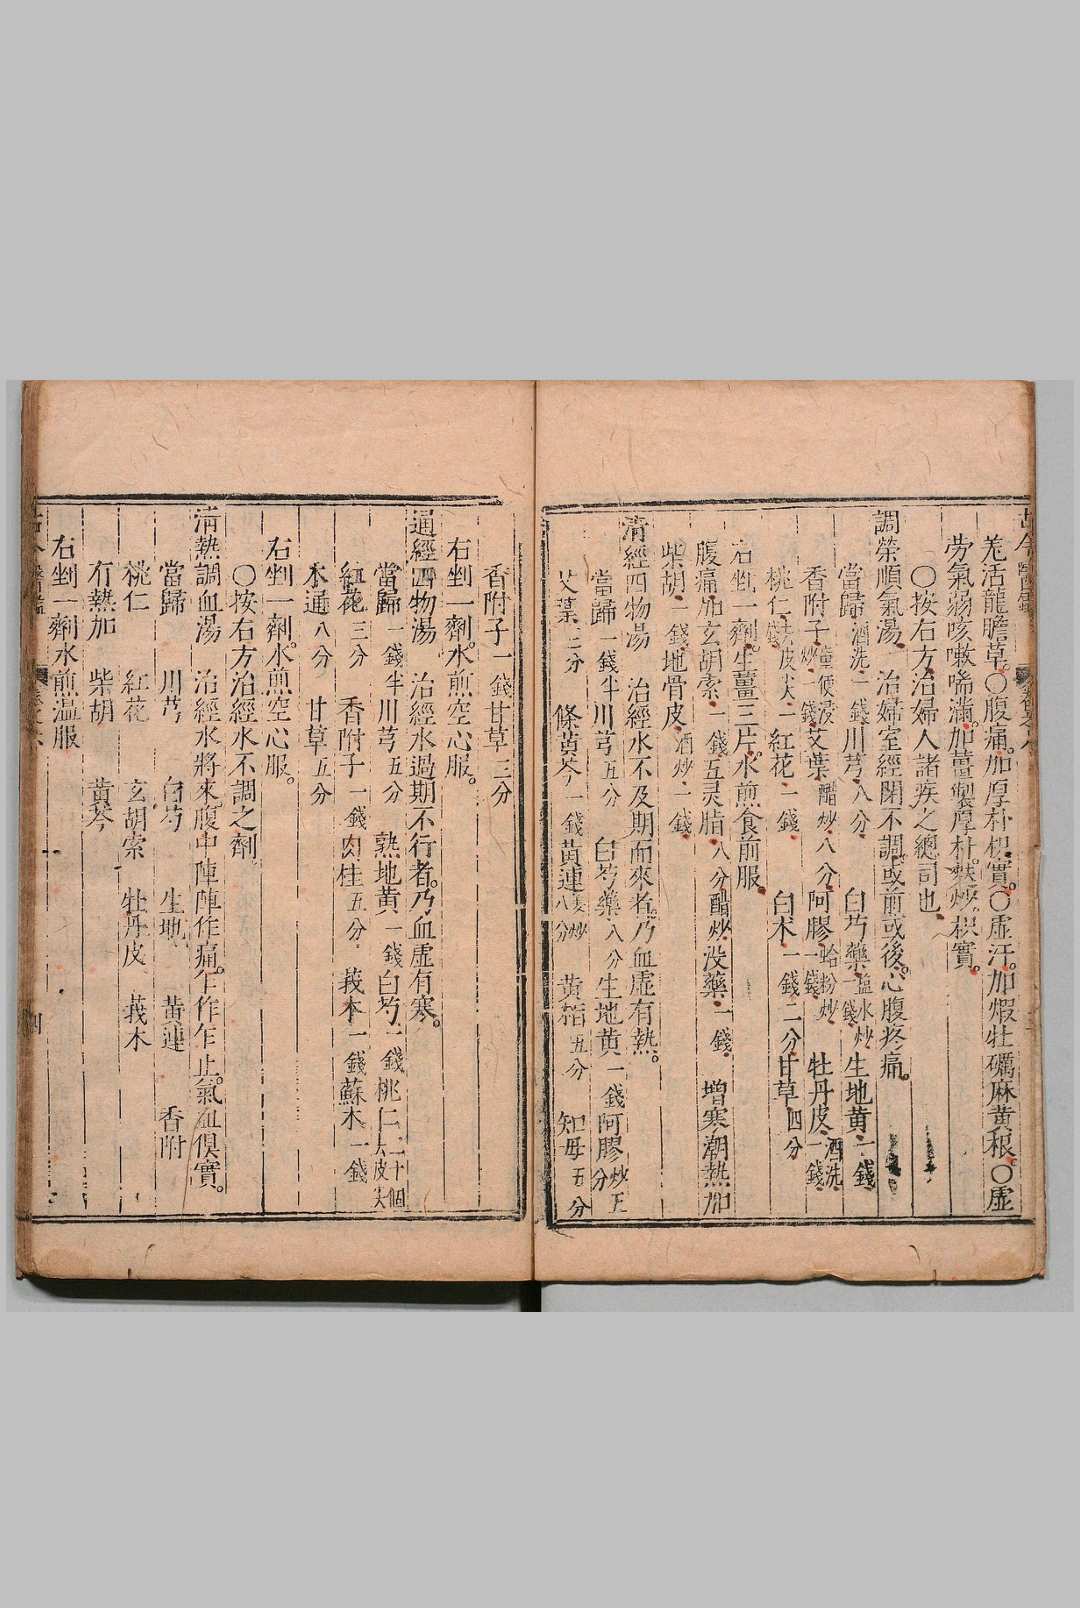 羗活龍膽草○腹痛加厚朴枳實○虛汗加煆牡礪麻黄根○虛
劳氣弱咳嗽喘滿加薑製厚朴麩炒枳實
○按右方治婦人諸疾之總司也
調榮順氣湯 治婦室經閉不調或前或後心腹疼痛
當歸酒洗一錢川芎八分 白芍藥塩水炒一錢生地黄一錢
香附子童便浸炒一錢艾葉醋炒八分阿膠蛤粉炒一錢 牡丹皮酒洗一錢
桃仁去皮尖一錢 紅花一錢 白术一錢二分甘草四分
右剉一劑生薑三片水煎食前服
腹痛加玄胡索一錢五灵脂八分醋炒没藥一錢 增寒潮熱加
柴胡一錢地骨皮酒炒一錢
清經四物湯 治經水不及期而來者乃血虛有熱
當歸一錢半川芎五分 白芍藥八分生地黄一錢阿膠炒五分
艾葉三分 條黄芩一錢黄連薑炒八分 黄栢五分 知母五分
香附子一錢甘草三分
右剉一劑水煎空心服
通經四物湯 治經水過期不行者乃血虛有寒
當歸一錢半川芎五分 熟地黄一錢白芍一錢桃仁二十個去皮尖
紅花三分 香附子一錢肉桂五分 莪术一錢蘇木一錢
木通八分 甘草五分
右剉一劑水煎空心服
○按右方治經水不調之劑
清熱調血湯 治經水將來腹中陣陣作痛乍作乍止氣血俱實
當歸 川芎 白芍 生地 黄連 香附
桃仁 紅花 玄胡索 牡丹皮 莪术
有熱加 柴胡 黄芩
右剉一劑水煎温服